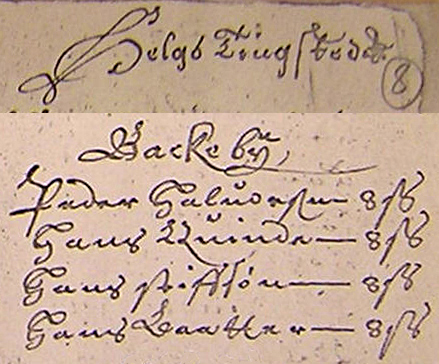 Helgo Tingstedt
8
Backeby,
Peder Haluorsen — 8 ß
Hans Quinde — 8 ß
Hans Kiffsön — 8 ß
Hans Baatter — 8 ß